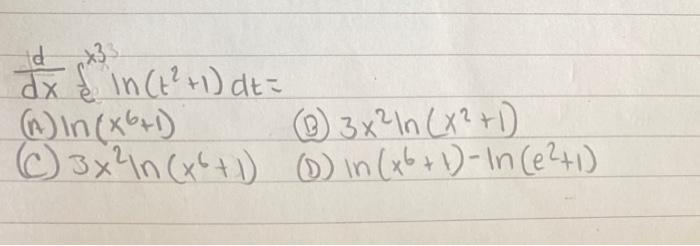 d/dx ∫_e^x³ ln(t²+1) dt =
(A) ln(x⁶+1) (B) 3x² ln(x²+1)
(C) 3x² ln(x⁶+1) (D) ln(x⁶+1) - ln(e²+1)